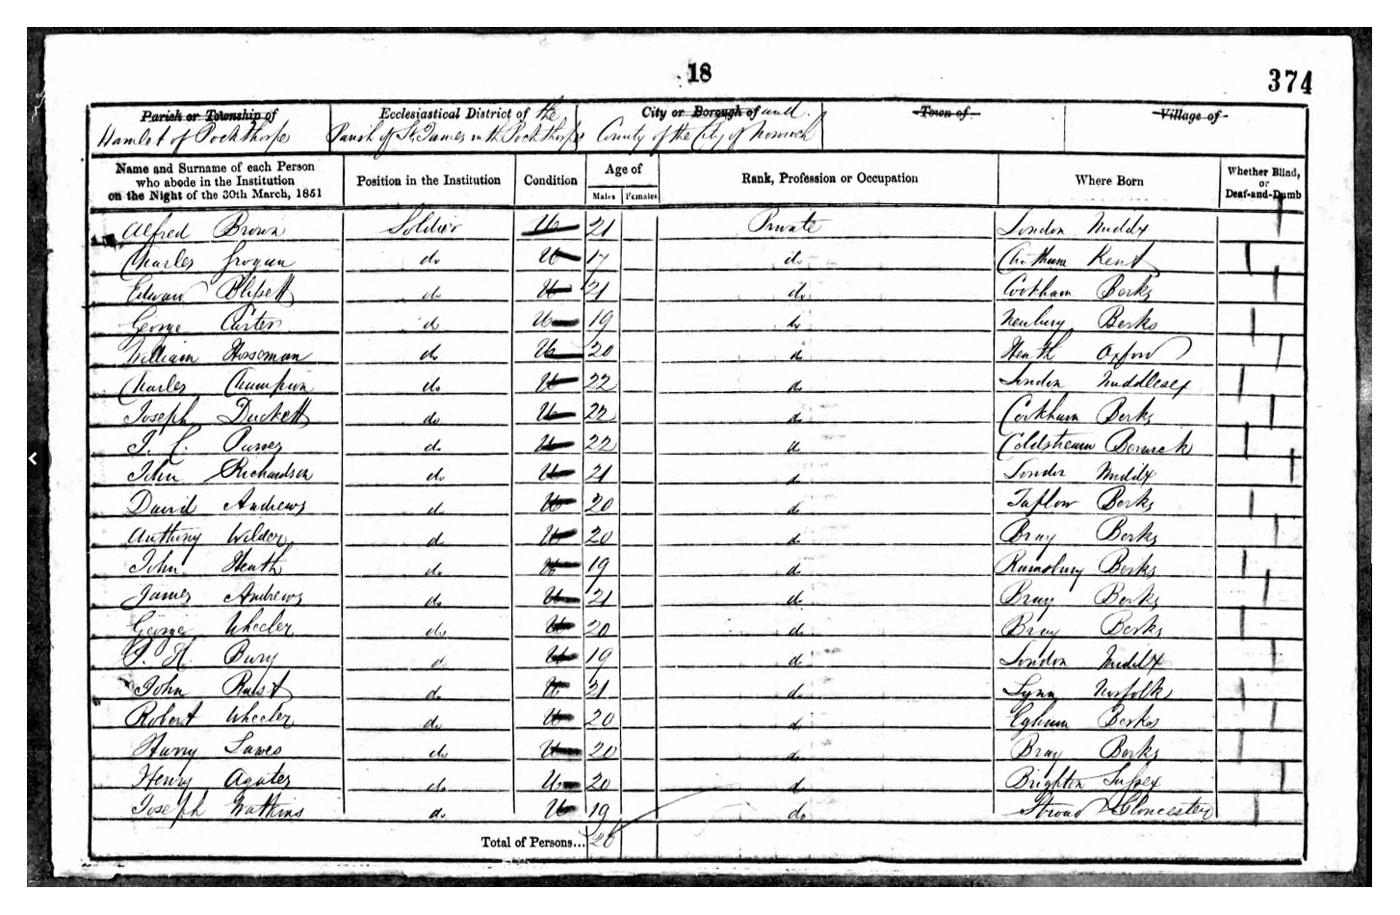 18
374
Parish or Township of Ecclesiastical District of the City or Borough of and Town of Village of
Hamlet of Pockthorpe Parish of St James in the Pockthorpe County of the City of Norwich
Name and Surname of each Person who abode in the Institution on the Night of the 30th March, 1851 Position in the Institution Condition Age of Males Females Rank, Profession or Occupation Where Born Whether Blind, or Deaf-and-Dumb
Alfred Brown Soldier U 21 Private London Middx
Charles Grogan do U 17 do Chatham Kent
Edwar Blissett do U 21 do Cookham Berks
George Carter do U 19 do Newbury Berks
William Horseman do U 20 do Heath Oxford
Charles Champion do U 22 do London Middlesex
Joseph Duckett do U 22 do Cookham Berks
J. C. Purves do U 22 do Coldstream Berwick
John Richardson do U 21 do London Middx
David Andrews do U 20 do Taplow Berks
Anthony Wilder do U 20 do Bray Berks
John Heath do U 19 do Ramsbury Berks
James Andrews do U 21 do Bray Berks
George Wheeler do U 20 do Bray Berks
J. H. Bury do U 19 do London Middx
John Rust do U 21 do Lynn Norfolk
Robert Wheeler do U 20 do Egham Berks
Harry Lawes do U 20 do Bray Berks
Henry Agates do U 20 do Brighton Sussex
Joseph Watkins do U 19 do Stroud Gloucester
Total of Persons... 20